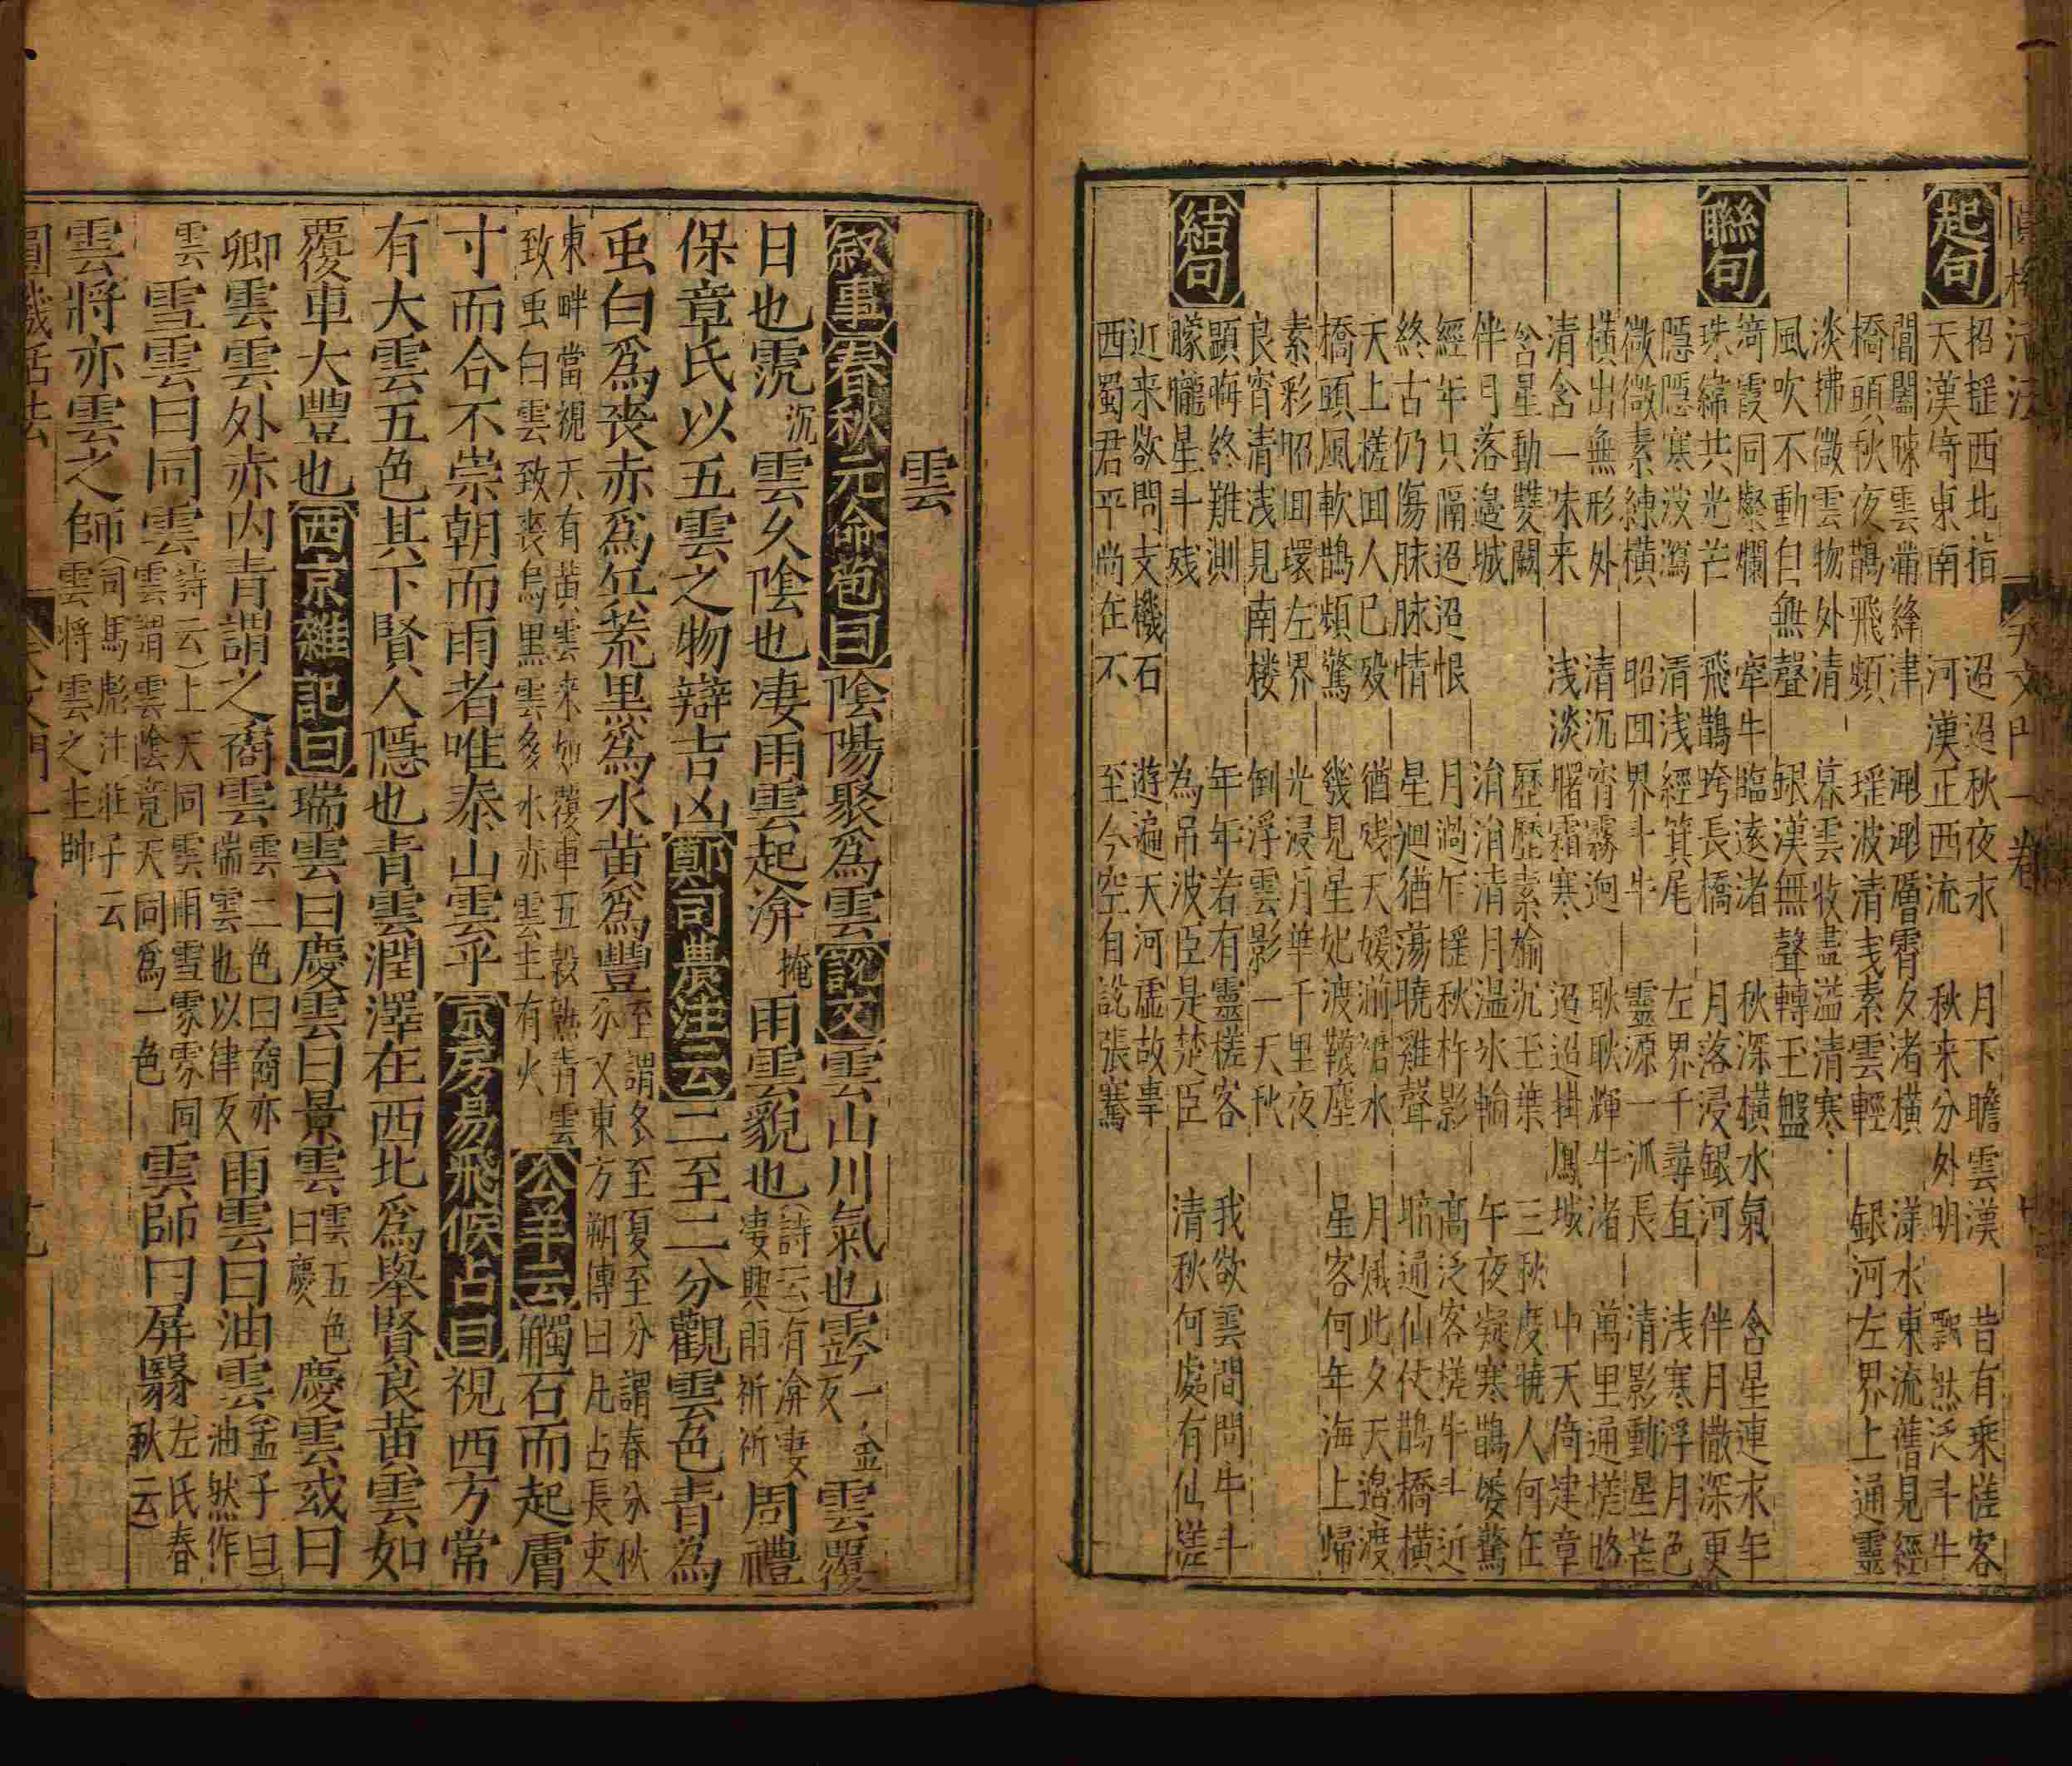 圓機活法 天文門一卷 十九
起句
招搖西北指 迢迢秋夜永 月下瞻雲漢 昔有乘槎客
天漢寄東南 河漢正西流 秋来分外明 飄然泛斗牛
閶闔疎雲滿絳津 層霄夕渚橫 漾水東流舊見經
橋頭秋夜鵲飛頻 瑶波清浅素雲輕 銀河左界上通靈
淡拂微雲物外清 暮雲收盡溢清寒
風吹不動自無聲 銀漢無聲轉玉盤
聯句
霞同燦爛 牽牛臨遠渚 秋深橫水氣 含星連永年
珠綿共光芒 飛鵲跨長橋 月落浸銀河 伴月撒深更
隱隱寒瀉 清浅經箕尾 左界千尋直 浅寒浮月色
微微素練橫 昭囬界斗牛 靈源一派長 清影動星芒
橫出無形外 清沉宵霧迥 耿耿輝牛渚 萬里通槎路
清含一味来 浅淡曙霜寒 迢迢掛鳳城 中天倚建章
含星動雙闕 歷歷素榆沉玉葉 三秋度曉人何在
伴月落邊城 涓涓清月温氷輪 午夜凝寒鵲驚
經年只隔迢迢恨 月過乍搖秋杵影 高泛客槎牛斗近
終古仍傷脉脉情 星迴猶蕩曉雞聲 暗通仙仗鵲橋橫
天上槎囬人已殁 猶残天媛湔裙水 月娥此夕天邊渡
橋頭風軟鵲頻驚 幾見星妃渡韈塵 星客何年海上歸
素彩昭囬環左界 光浸月華千里夜
良宵清浅見南楼 倒浮雲影一天秋
結句
顯晦終難測 年年若有靈槎客 我欲雲間問牛斗
朦朧星斗残 為吊波臣是楚臣 清秋何處有仙槎
近来欲問支機石 遊遍天河虛故事
西蜀君平尚在不 至今空自說張騫
雲
叙事 春秋元命苞曰 陰陽聚為雲 說文 雲山川氣也 霒 一金反 雲覆
日也 霃 沉 雲久陰也 凄雨雲起 渰 掩 雨雲貌也 (詩云)有渰凄凄興雨祈祈 周禮
保章氏以五雲之物辯吉凶 鄭司農注云 二至二分觀雲色青為
虫白為喪赤為兵荒黑為水黄為豐 至謂冬至夏至分謂春分秋分又東方朔傳曰凡占長吏
東畔當視天有黄雲来如覆車五穀熟青雲致虫白雲致喪烏黒雲多水赤雲主有火 公羊云 觸石而起膚
寸而合不崇朝而雨者唯泰山雲乎 京房易飛候占曰 視西方常
有大雲五色其下賢人隱也青雲潤澤在西北為舉賢良黄雲如
覆車大豐也 西京雜記曰 瑞雲曰慶雲曰景雲 雲五色曰慶 慶雲或曰
卿雲雲外赤内青謂之矞雲 雲二色曰矞亦瑞雲也以律反 雨雲曰油雲 (孟子曰油然作
雲 雪雲曰同雲 (詩云)上天同雲雨雪雰雰同雲雲謂雲陰竟天同為一色 雲師曰屏翳 左氏春秋云)
雲將亦雲之師 (司馬彪注莊子云雲将雲之主帥
圓機活法 天文門一 十九